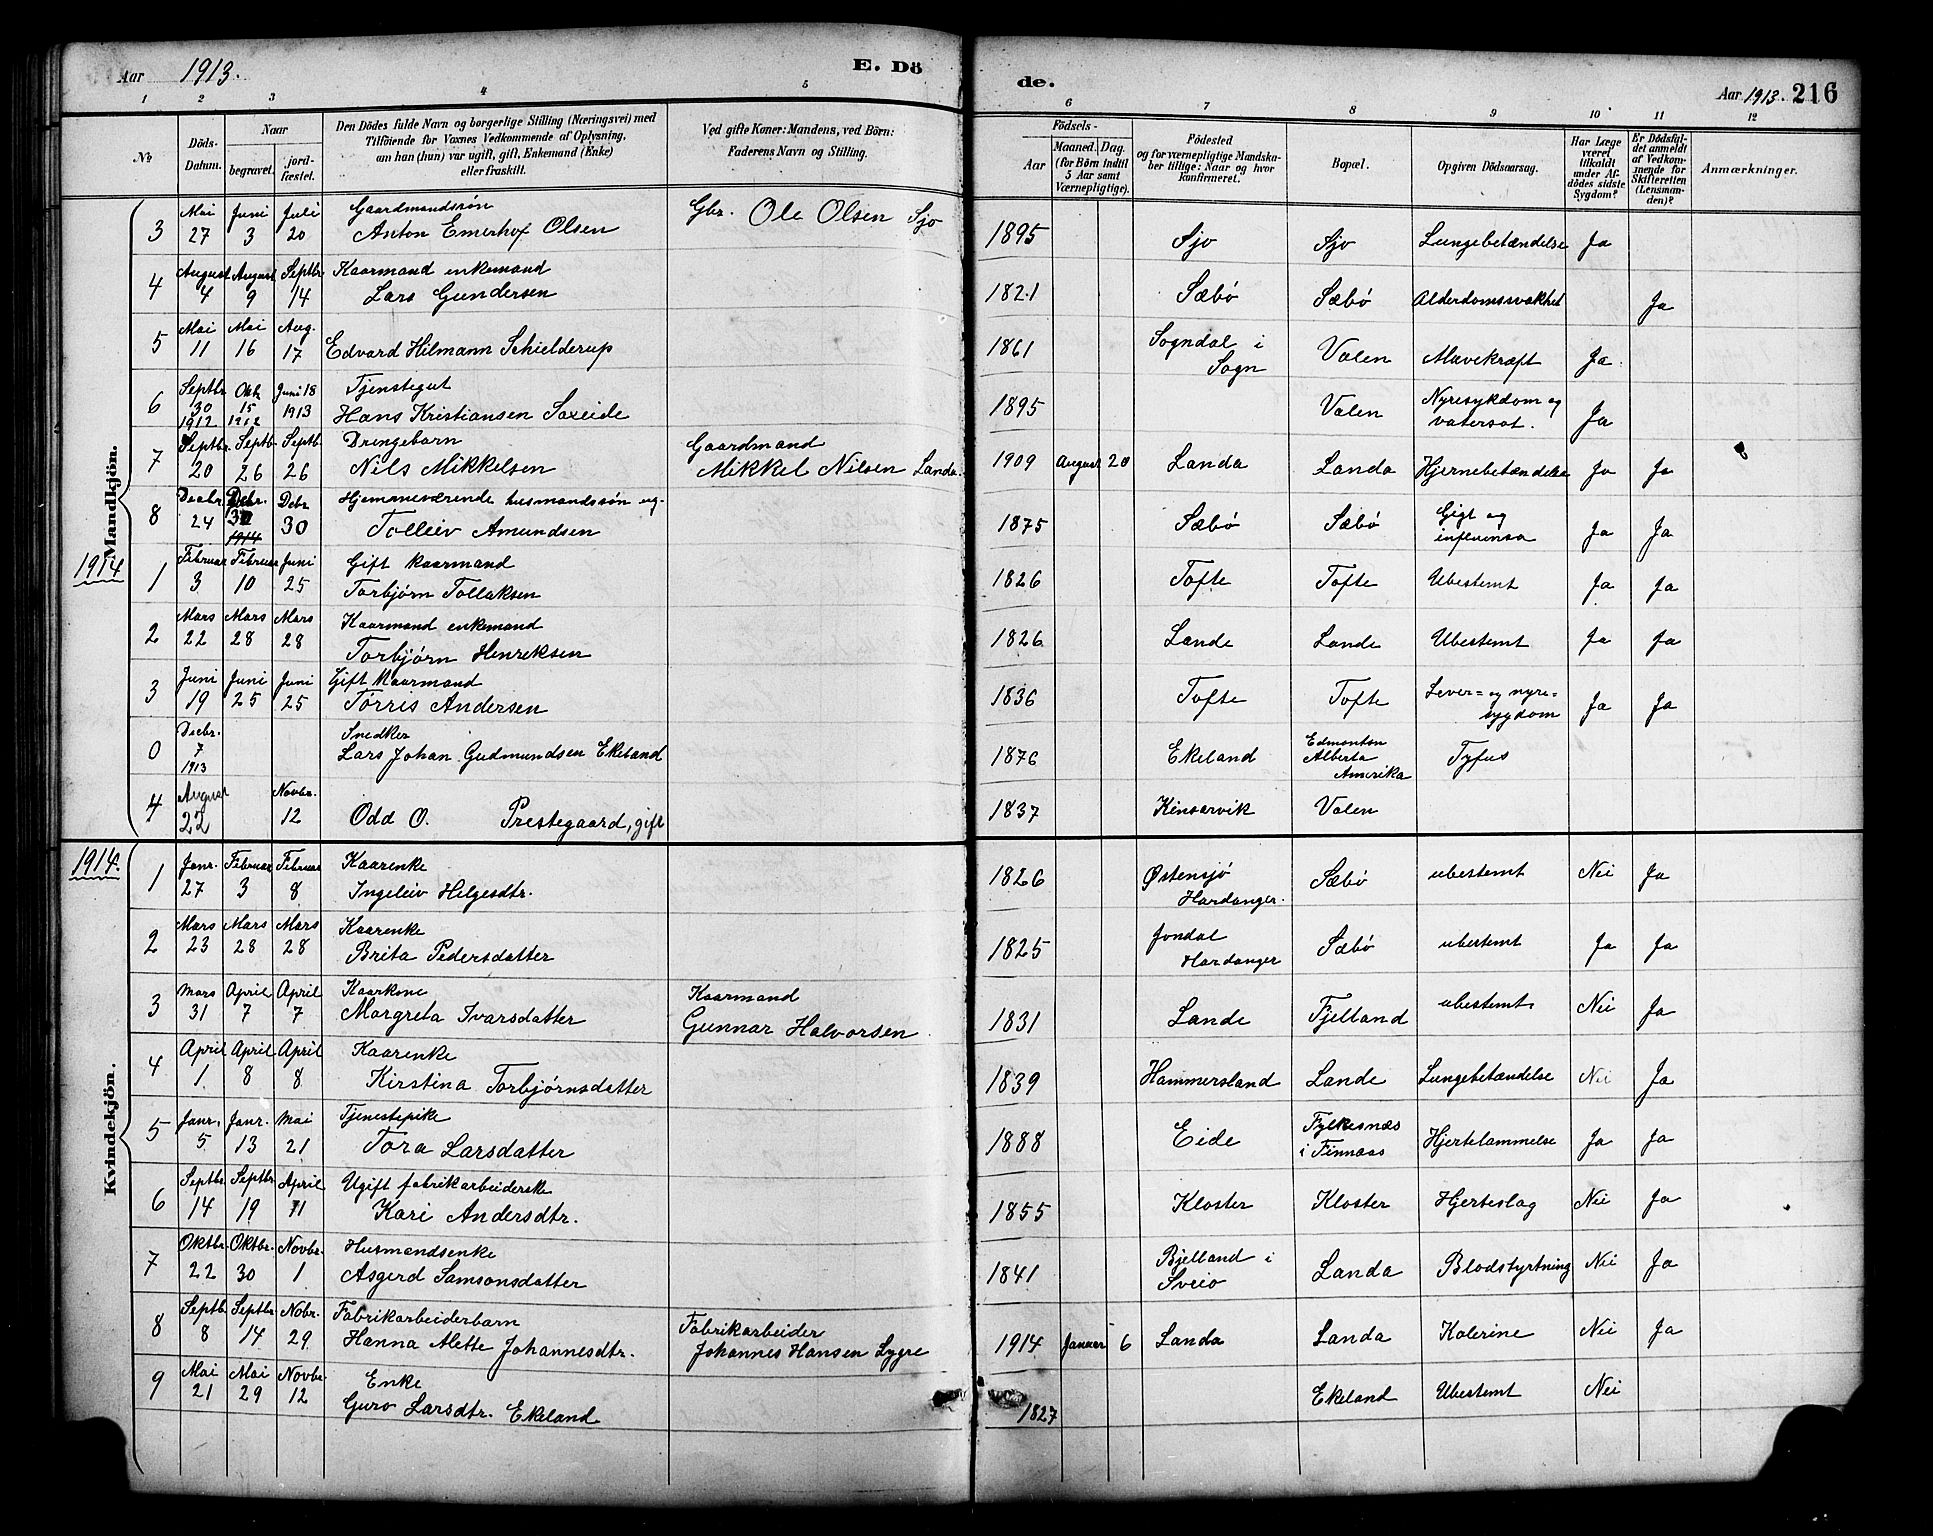 Aar 1913. E. Dö de. Aar 1913. 216
1 2 3 4 5 6 7 8 9 10 11 12
No
Döds-Datum.
Naar
begravet.
jord-fæstet.
Den Dödes fulde Navn og borgerlige Stilling (Næringsvei) med
Tilföiende for Voxnes Vedkommende af Oplysning,
om han (hun) var ugift, gift, Enkemand (Enke)
eller fraskilt.
Ved gifte Koner: Mandens, ved Börn:
Faderens Navn og Stilling.
Födsels-
Aar
Maaned. Dag.
(for Börn indtil
5 Aar samt
Værnepligtige).
Födested
og for værnepligtige Mandska-
ber tillige: Naar og hvor
konfirmeret.
Bopæl.
Opgiven Dödsaarsag.
Har Læge
været
tilkaldt
under Af-
dödes sidste
Sygdom?
Er Dödsfal-
det anmeldt
af Vedkom-
mende for
Skifteretten
(Lensman-
den)?
Anmærkninger.
Mandkjön.
3 Mai 27 Juni 3 Juli 20 Gaardmandssøn
Anton Emerhof Olsen Gbr. Ole Olsen Sjo 1895 Sjo Sjo Lungebetændelse Ja
4 August 4 August 9 Septbr. 14 Kaarmand enkemand
Lars Gundersen 1821 Sæbö Sæbö Alderdomssvakhet Ja
5 Mai 11 Mai 16 Aug. 17 Edvard Hilmann Schielderup 1861 Sogndal i Sogn Valen Mavekræft Ja
6 Septbr. 30 1912 Oktr. 15 1912 Juni 18 1913 Tjenstegut
Hans Kristiansen Saxeide 1895 Valen Nyresykdom og vatersot. Ja
7 Septbr. 20 Septb. 26 Septb. 26 Drengebarn
Nils Mikkelsen Gaardmand
Mikkel Nilsen Landa 1909 August 20 Landa Landa Hjernebetændelse Ja Ja
8 Decbr. 24 Debr. 30 1914 Debr 30 Hjemmeværende husmandssön ug.
Tolleiv Amundsen 1875 Sæbö Sæbö Gigt og influensa Ja Ja
1914
1 Februar 3 Februar 10 Juni 25 Gift kaarmand
Torbjörn Tollaksen 1826 Tofte Tofte Ubestemt Ja Ja
2 Mars 22 Mars 28 Mars 28 Kaarmand enkemand
Torbjörn Henriksen 1826 Lande Lande Ubestemt Ja Ja
3 Juni 19 Juni 25 Juni 25 Gift Kaarmand
Törris Andersen 1836 Tofte Tofte Lever= og nyre=sygdom Ja Ja
0 Decbr. 7 1913 Snedker
Lars Johan Gudmundsen Ekeland 1876 Ekeland Edmonton Alberta Amerika Tyfus
4 August 22 Novbr. 12 Odd O. Prestegaard, gift 1837 Kinsarvik Valen
1914.
Kvindekjön.
1 Janr. 27 Februar 3 Februar 8 Kaarenke
Ingeleiv Helgesdtr. 1826 Østensjö Hardanger. Sæbö ubestemt Nei Ja
2 Mars 23 Mars 28 Mars 28 Kaarenke
Brita Pedersdatter 1825 Jondal Hardanger Sæbö ubestemt Ja Ja
3 Mars 31 April 7 April 7 Kaarkone
Margreta Ivarsdatter Kaarmand
Gunnar Halvorsen 1831 Lande Fjelland ubestemt Nei Ja
4 April 1. April 8 April 8 Kaarenke
Kirstina Torbjörnsdatter 1839 Hammersland Lande Lungebetændelse Nei Ja
5 Janr. 5 Janr. 13 Mai 21 Tjenestepike
Tora Larsdatter 1888 Eide Fylkesnæs i Finnaas Hjertelammelse Ja Ja
6 Septbr 14 Septbr 19 April 11 Ugift fabrikarbeiderske
Kari Andersdtr. 1855 Kloster Kloster Hjerteslag Nei Ja
7 Oktbr. 22 Oktbr. 30 Novbr. 1 Husmandsenke
Asgerd Samsonsdatter 1841 Bjelland i Sveio Landa Blodstyrtning Nei Ja
8 Septbr 8 Septbr 14 Nobr. 29 Fabrikarbeiderbarn
Hanna Alette Johannesdtr. Fabrikarbeider
Johannes Hansen Lygre 1914 Januar 6 Landa Landa Kolerine Nei Ja
9 Mai 21 Mai 29 Novbr 12 Enke
Guro Larsdtr. Ekeland 1827 Ekeland Ubestemt Nei